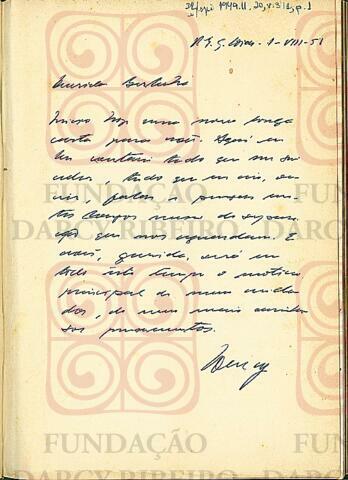 DR/spi 1949.11.20, v.3/1, p.1
1-VIII-51
Querida Berta
Inicio hoje uma nova longa
carta para você. Aqui eu
lhe contarei tudo que me su
ceder, tudo que eu vir, ou
vir, falar e pensar nes
tes longos meses de separa
ção que nos aguardam. E
você, querida, será em
todo este tempo o motivo
principal de meus cuida
dos, de meus mais
pensamentos.
Darcy
FUNDAÇÃO
DARCY RIBEIRO
DARCY RIBEIRO
FUNDAÇÃO
FUNDAÇÃO
DARCY RIBEIRO
DARCY RIBEIRO